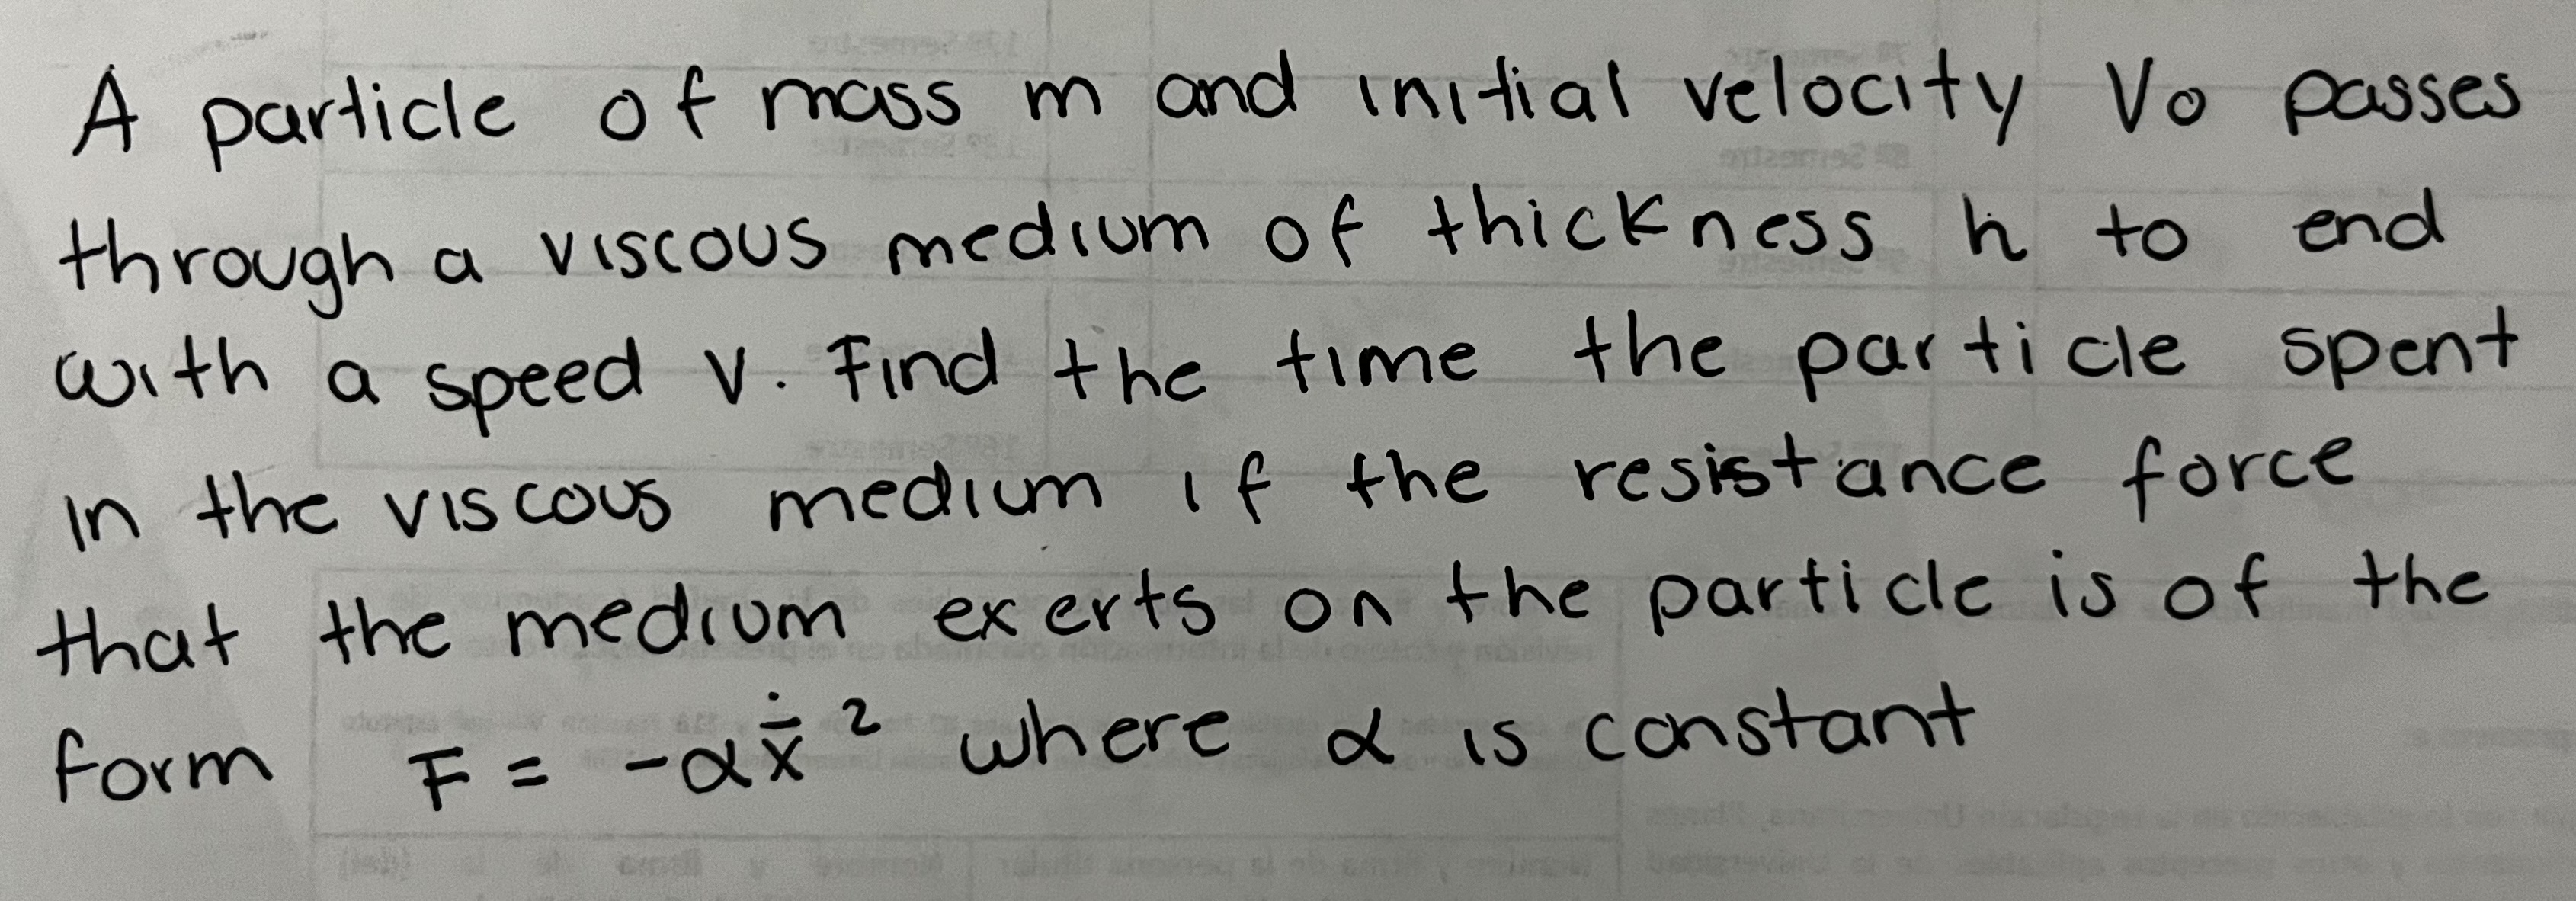 A particle of mass m and initial velocity Vo passes
through a viscous medium of thickness h to end
with a speed v. Find the time the particle spent
in the viscous medium if the resistance force
that the medium exerts on the particle is of the
form F = -αẋ² where α is constant